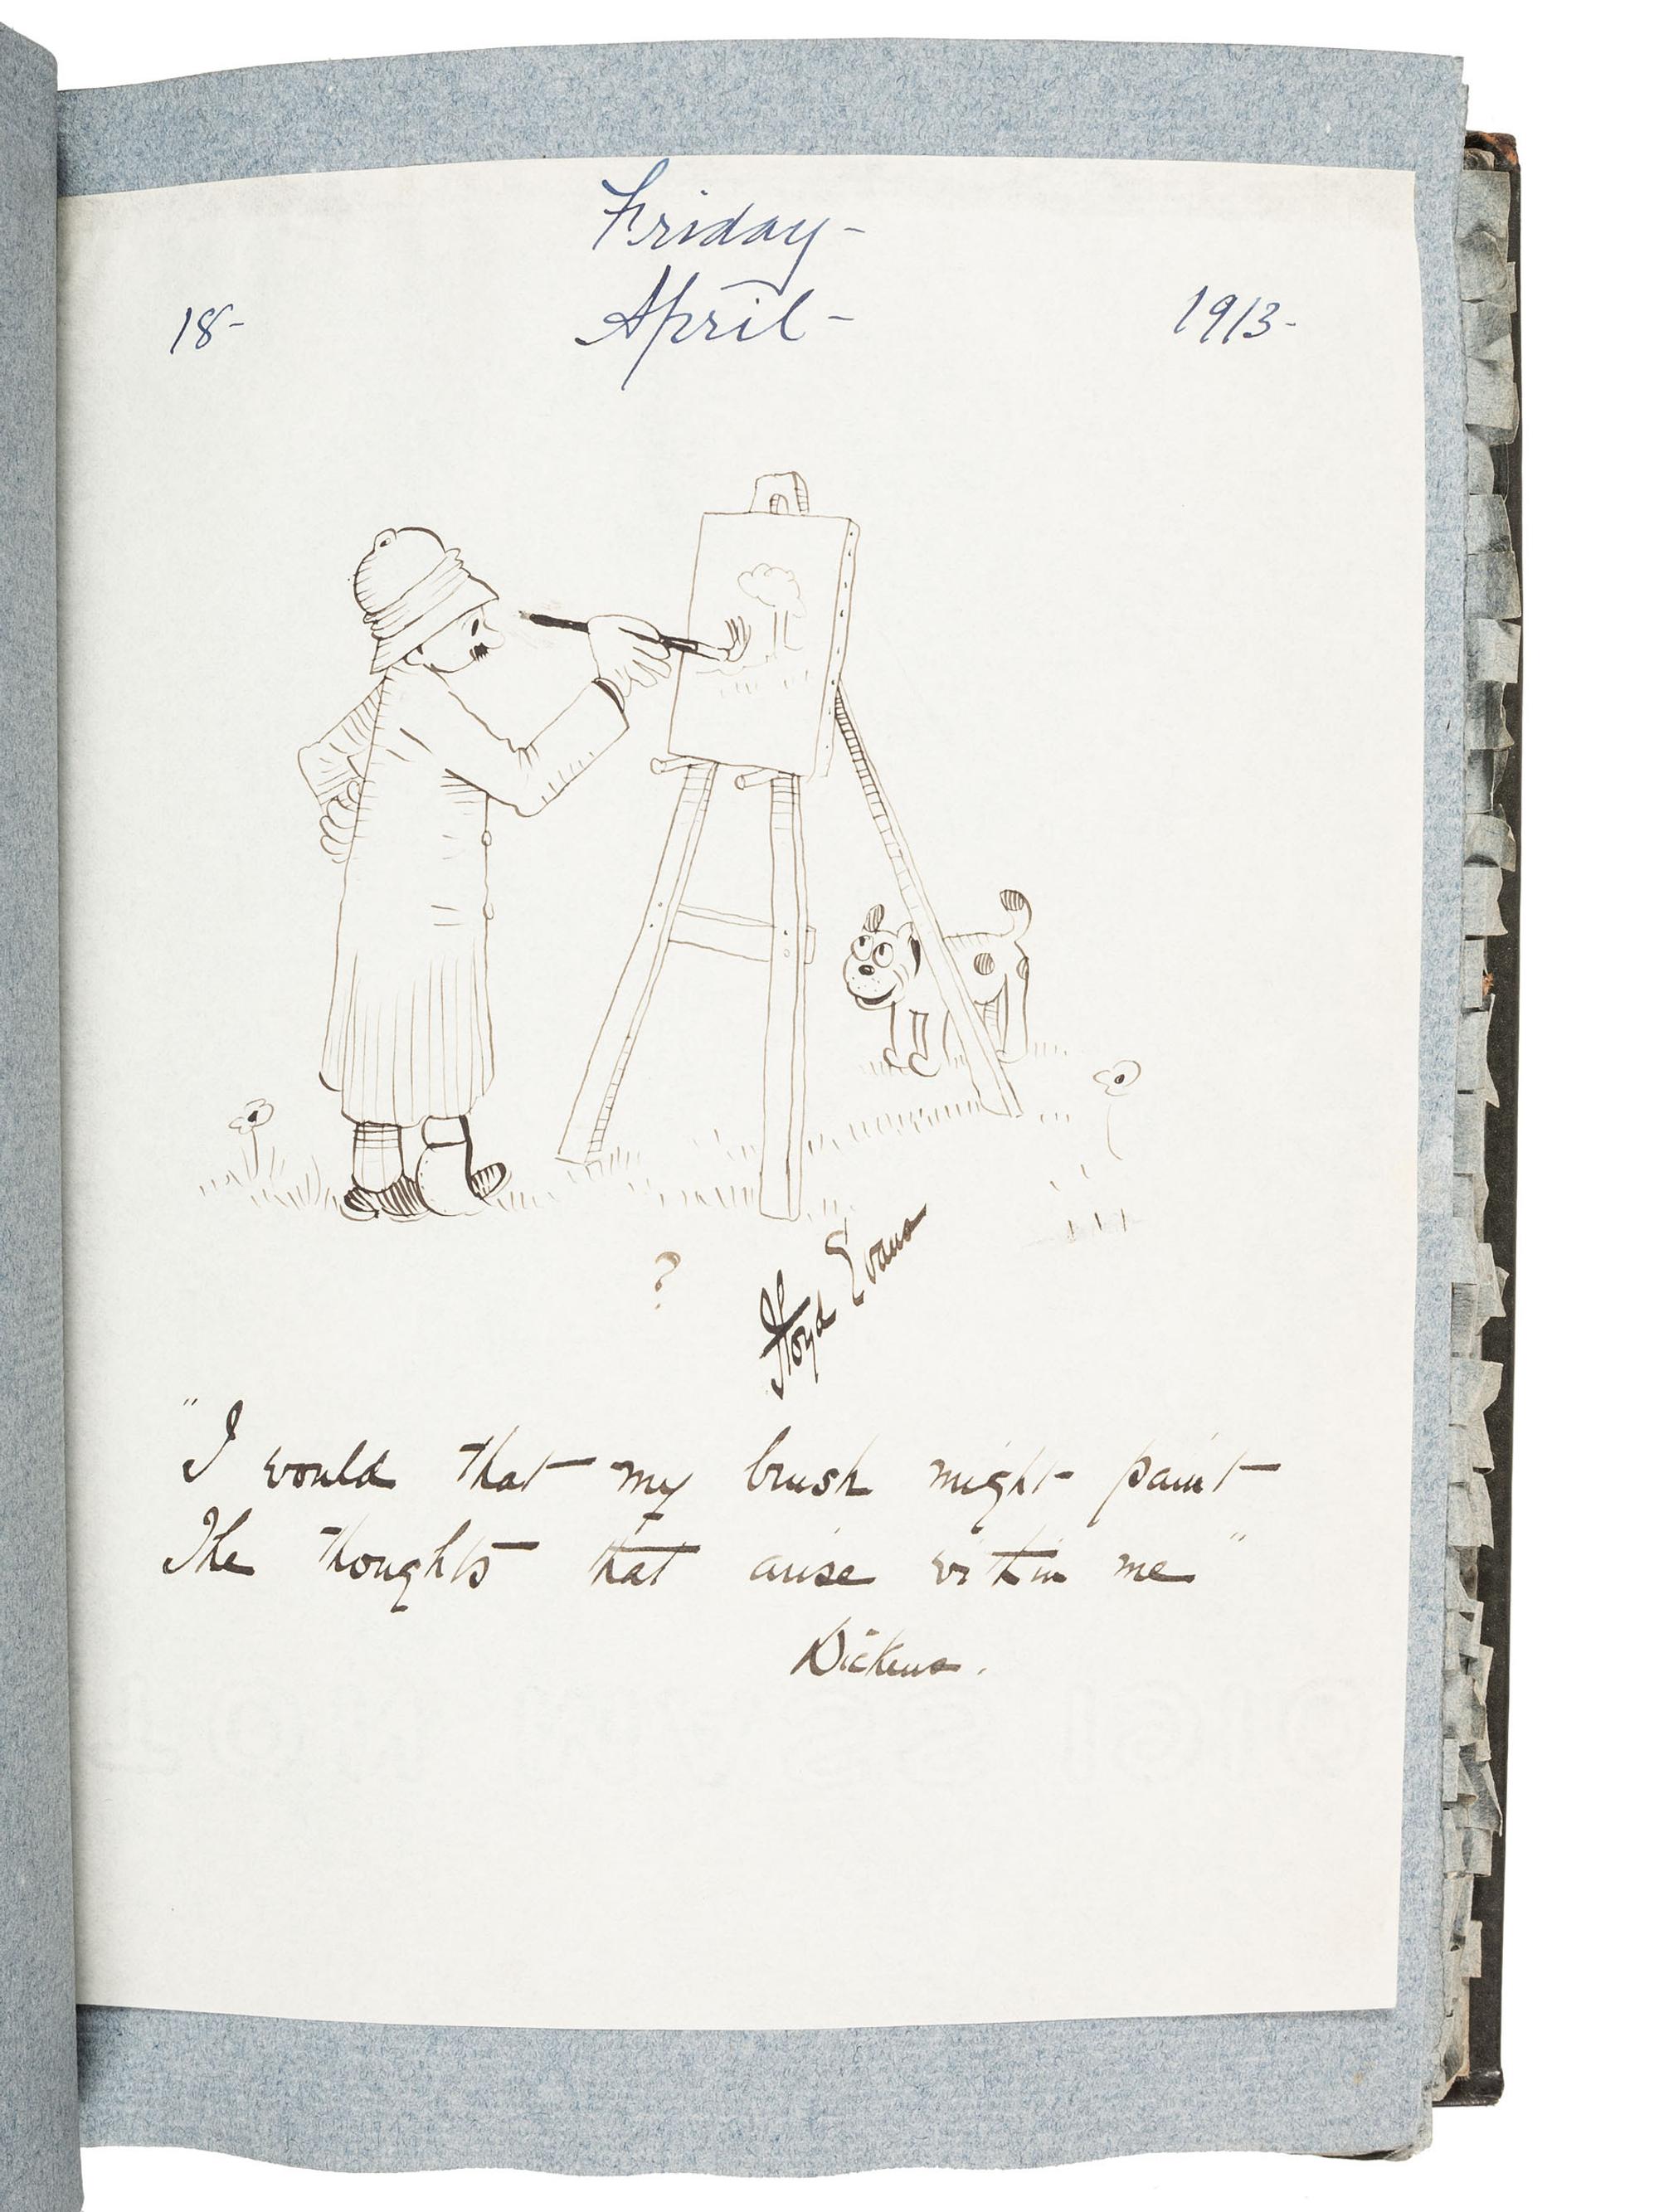 Friday -
18- April - 1913-
?
Floyd Evans
"I would that my brush might paint
The thoughts that arise within me"
Dickens.